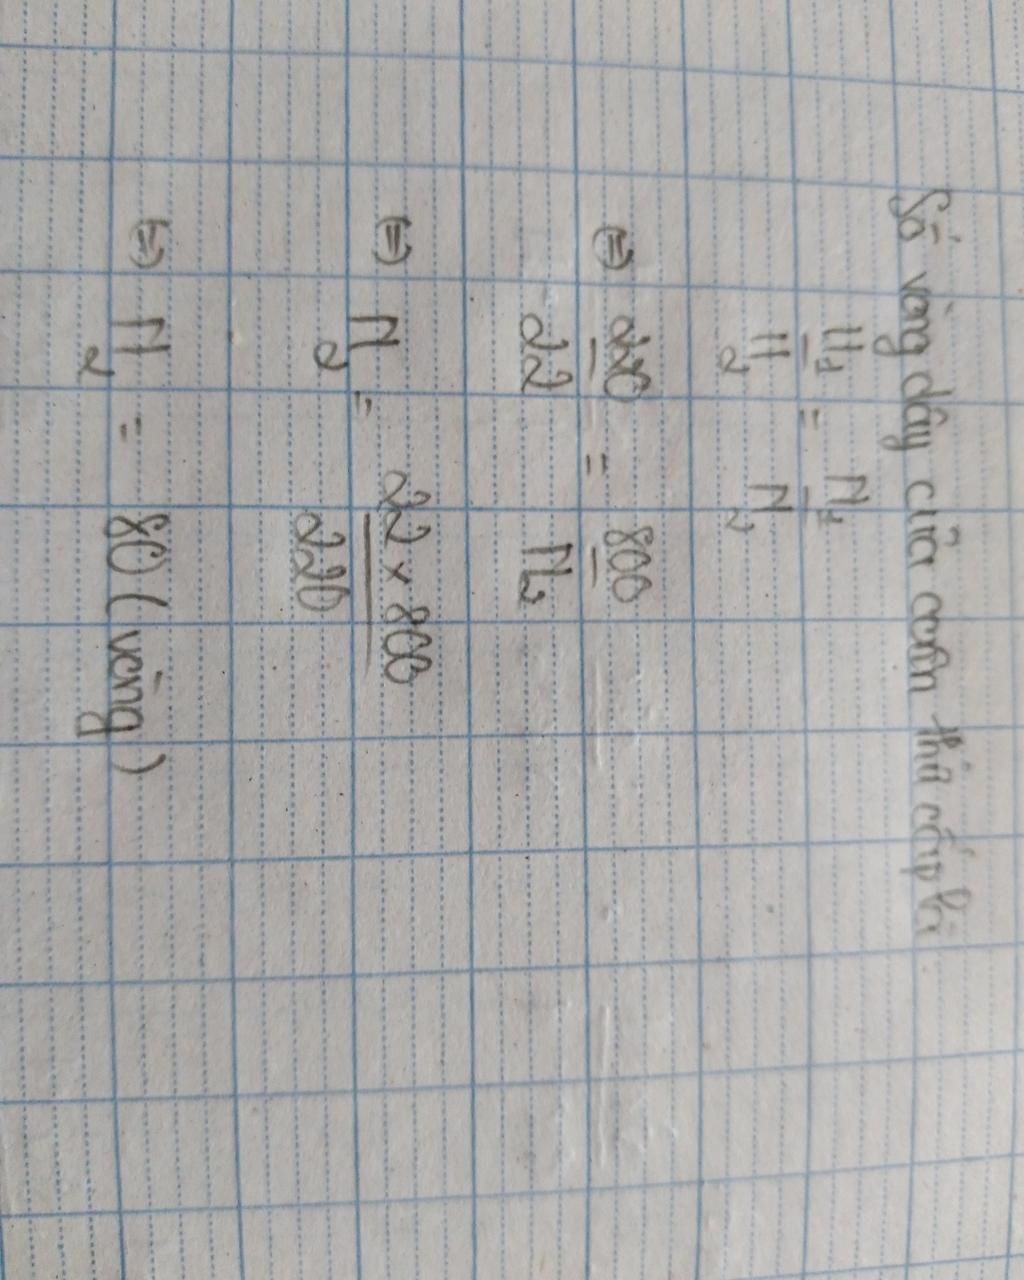 Số vòng dây của cuộn thứ cấp là
U₁/U₂ = N₁/N₂
⇒ 220/22 = 800/N₂
⇒ N₂ = 22 × 800/220
⇒ N₂ = 80 (vòng)